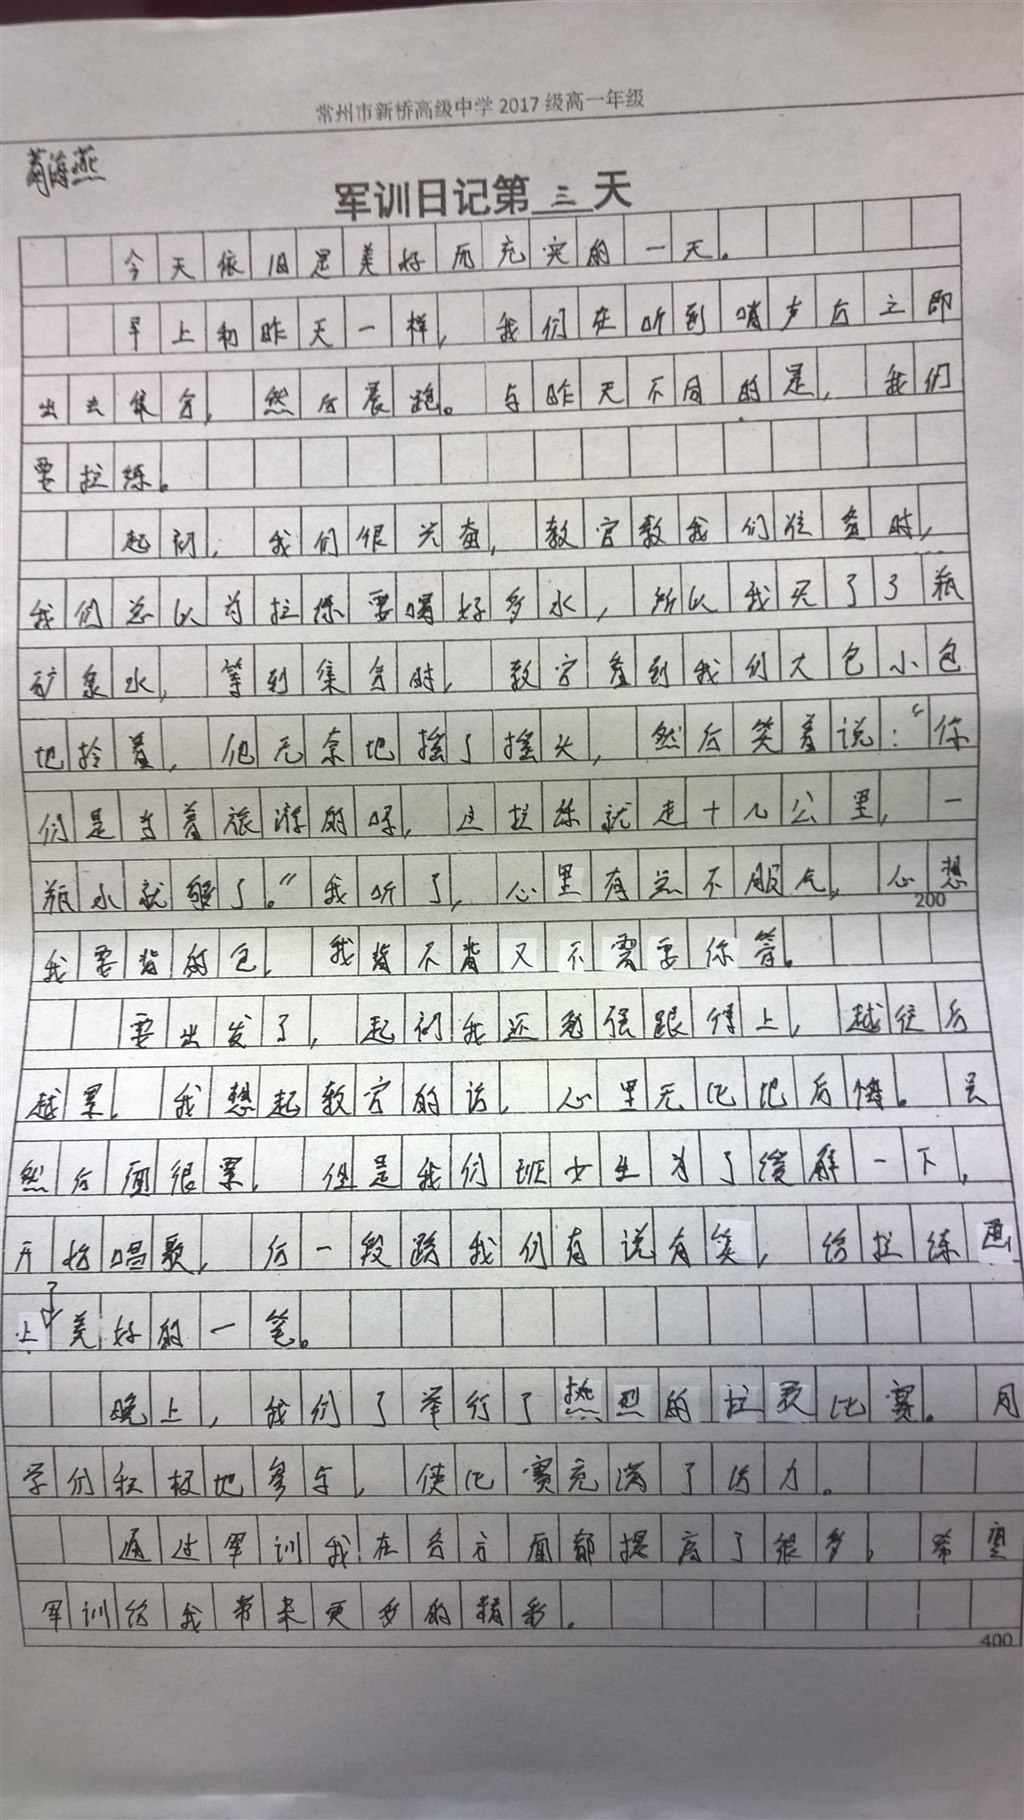 常州市新桥高级中学 2017 级高一年级
海燕
军训日记第三天
今天依旧是美好而充实的一天。
早上和昨天一样，我们在听到哨声后立即
出去集合，然后晨跑。与昨天不同的是，我们
要拉练。
起初，我们很兴奋，教官教我们准备时，
我们总以为拉练要喝好多水，所以我买了3瓶
矿泉水，等到集合时，教官看到我们大包小包
地拎着，他无奈地摇了摇头，然后笑着说：“你
们是当着旅游的呀，这拉练就走十几公里，一
瓶水就够了。”我听了，心里有点不服气，心想
200
我要背的包，我背不背又不需要你管。
要出发了，起初我还勉强跟得上，越往后
越累，我想起教官的话，心里无比地后悔。虽
然后面很累，但是我们班女生为了缓解一下，
开始唱歌，后一段路我们有说有笑，给拉练画
上了美好的一笔。
晚上，我们了举行了热烈的拉歌比赛。同
学们积极地参与，使比赛充满了活力。
通过军训我在各方面都提高了很多，希望
军训给我带来更多的精彩。
400